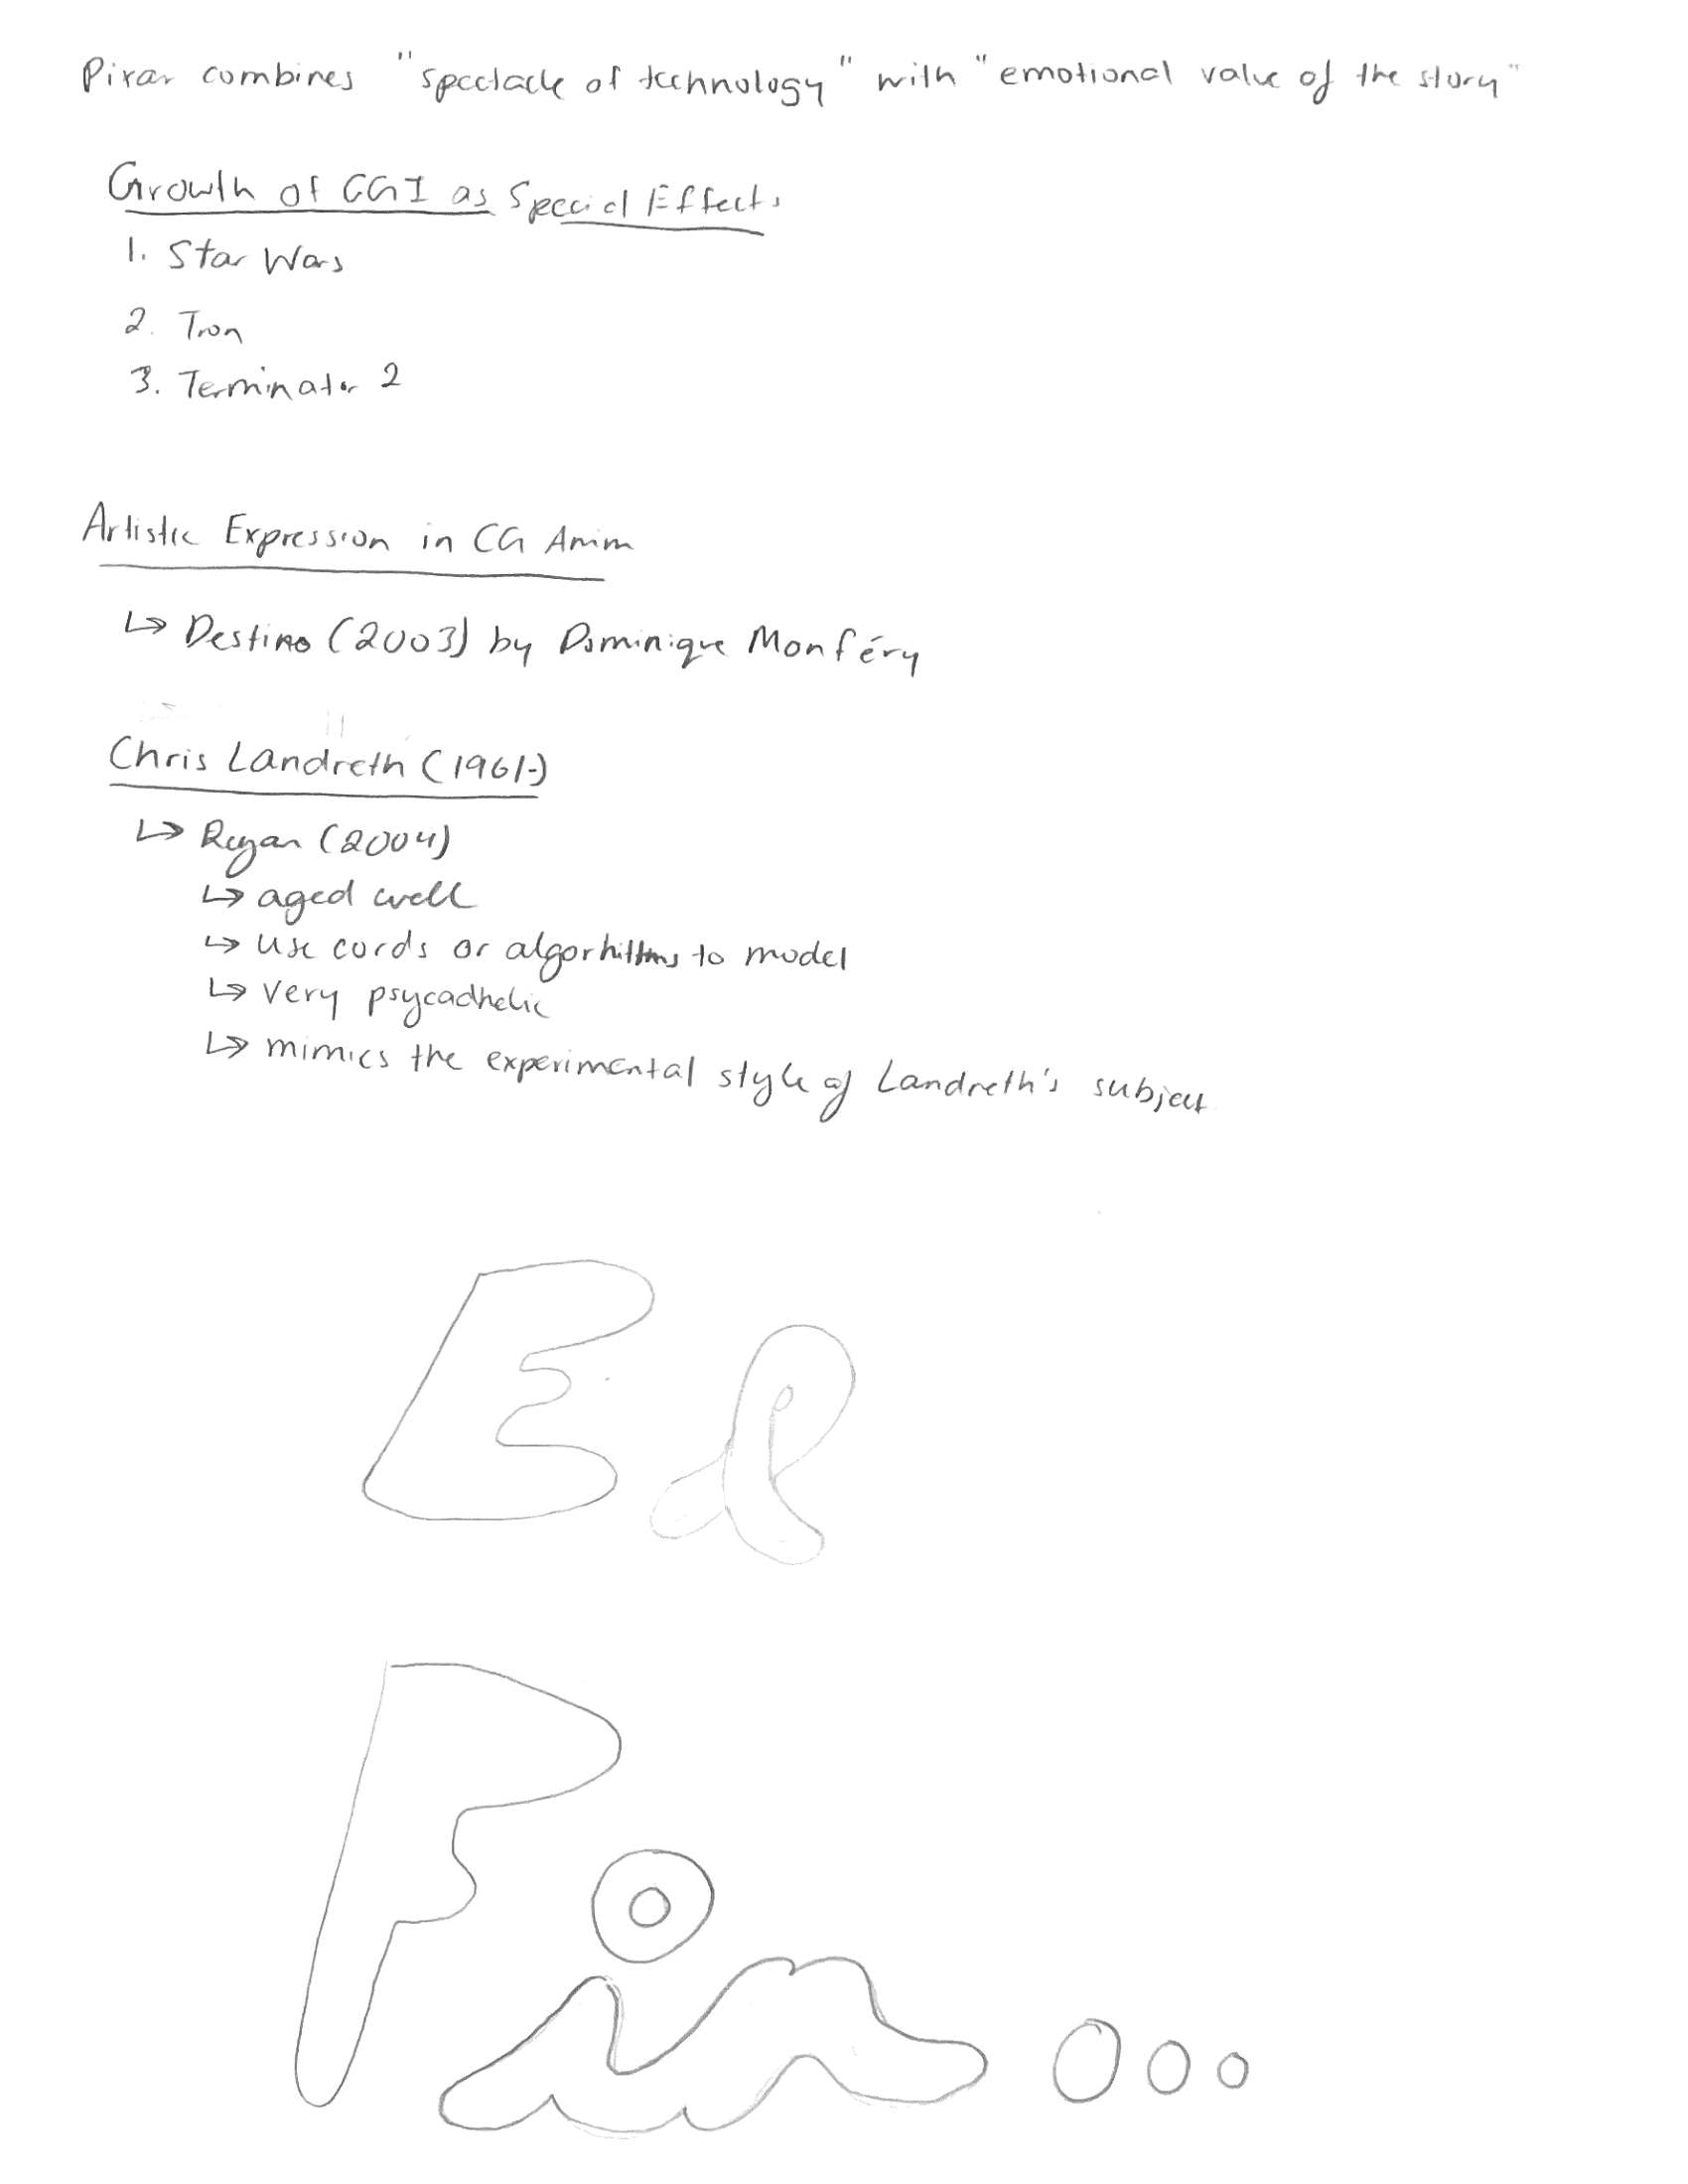 Pixar combines "spectacle of technology" with "emotional value of the story"
Growth of CGI as Special Effects
1. Star Wars
2. Tron
3. Terminator 2
Artistic Expression in CG Anim
↳ Destino (2003) by Dominique Monféry
Chris Landreth (1961-)
↳ Ryan (2004)
↳ aged well
↳ use cords or algorhithms to model
↳ very psycadhelic
↳ mimics the experimental style of Landreth's subject
El
Fin...